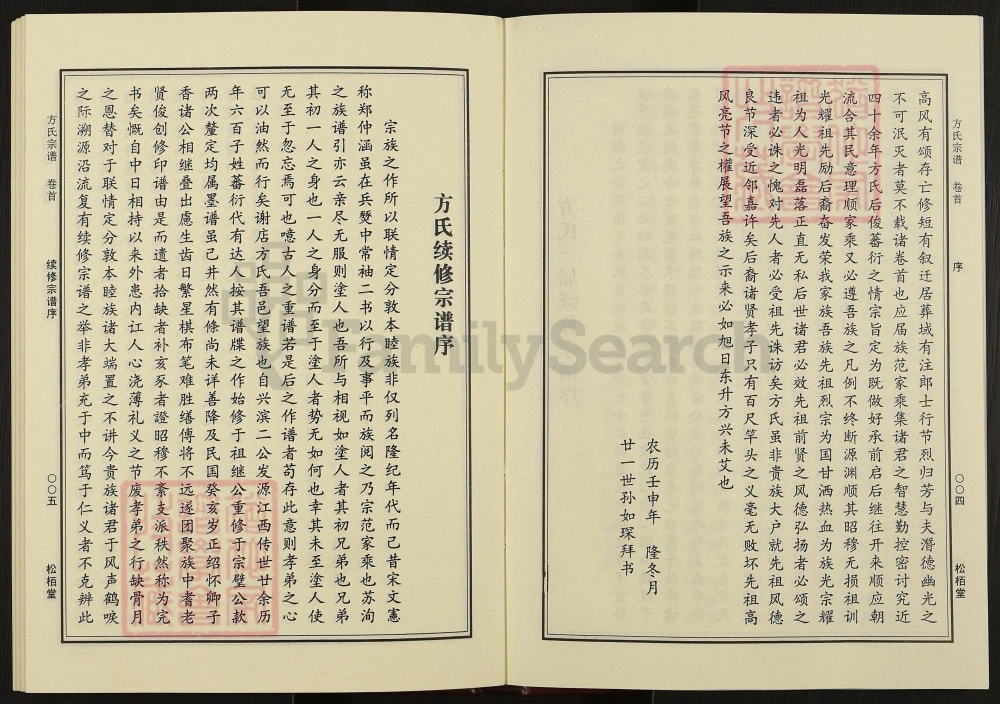 方氏宗谱 卷首
序
〇〇四
松栢堂
高风有颂存亡修短有叙迁居葬域有注郎士行节烈归芳与夫潛德幽光之
不可泯灭者莫不载诸卷首也应届族范家乘集诸君之智慧勤控密讨究近
四十余年方氏后俊蕃衍之情宗旨定为既做好承前启后继往开来顺应朝
流合其民意理顺家乘又必遵吾族之凡例不终断源渊顺其昭穆无损祖训
光耀祖先励后裔奋发荣我家族吾族先祖烈宗为国甘洒热血为族光宗耀
祖为人光明磊落正直无私后世诸君必效先祖前贤之风德弘扬者必颂之
违者必诛之愧对先人者必受祖先诛访矣方氏虽非贵族大户就先祖风德
良节深受近邻嘉许矣后裔诸贤孝子只有百尺竿头之义毫无败坏先祖高
风亮节之權展望吾族之示来必如旭日东升方兴未艾也
农历壬申年 隆冬月
廿一世孙如琛拜书
方氏续修宗谱序
宗族之作所以联情定分敦本睦族非仅列名隆纪年代而已昔宋文憲
称郑仲涵虽在兵燹中常袖二书以行及事平而族阅之乃宗范家乘也苏洵
之族谱引亦云亲尽无服则塗人也吾所与相视如塗人者其初兄弟也兄弟
其初一人之身也一人之身分而至于塗人者势无如何也幸其未至塗人使
无至于忽忘焉可也噫古人之重谱若是后之作谱者苟存此意则孝弟之心
可以油然而行矣谢店方氏吾邑望族也自兴滨二公发源江西传世廿余历
年六百子姓蕃衍代有达人按其谱牒之作始修于祖继公重修于宗璧公款
两次釐定均属墨谱虽己井然有條尚未详善降及民国癸亥岁正绍怀卿子
香诸公相继叠出慮生齿日繁星棋布笔难胜缮傅将不远遂团聚族中耆老
贤俊创修印谱由是而遗者拾缺者补亥豕者證昭穆不紊支派秩然称为完
书矣慨自中日相持以来外患内讧人心浇薄礼义之节废孝弟之行缺骨月
之恩替对于联情定分敦本睦族诸大端置之不讲今贵族诸君于风声鹤唳
之际溯源沿流复有续修宗谱之举非孝弟充于中而笃于仁义者不克辨此
方氏宗谱 卷首
续修宗谱序
〇〇五
松栢堂
FamilySearch